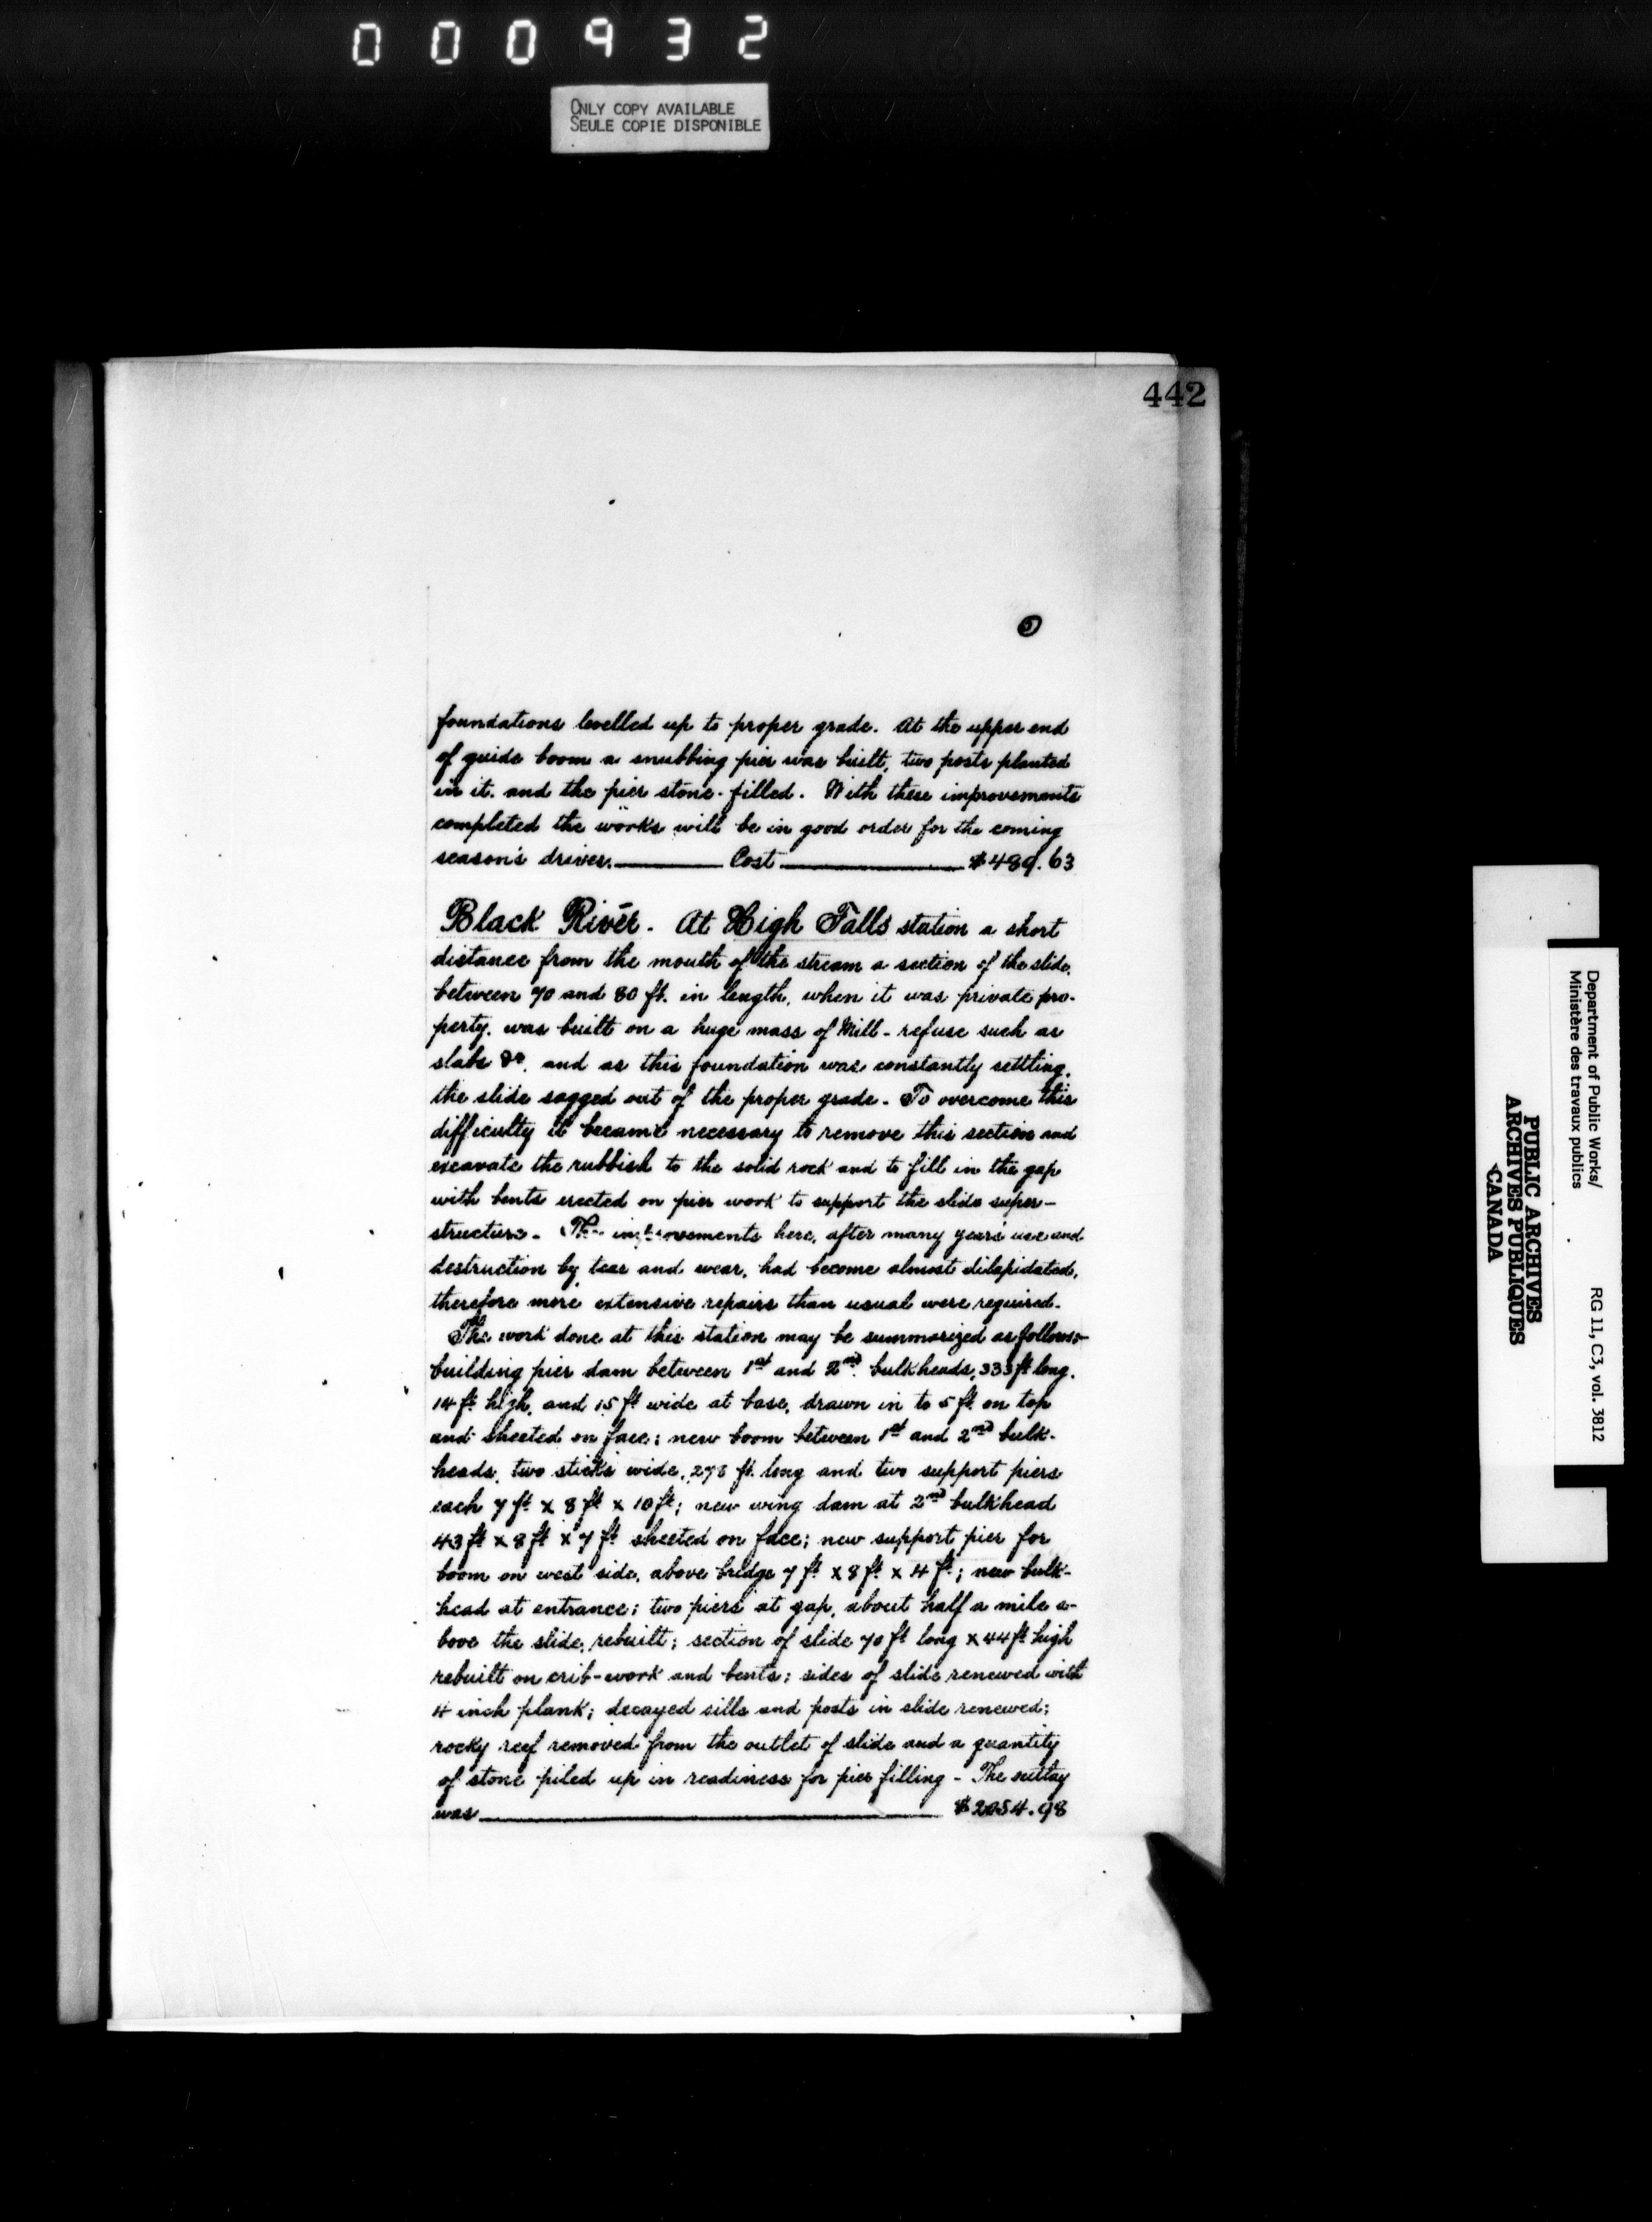 000932
ONLY COPY AVAILABLE
SEULE COPIE DISPONIBLE
442
foundations levelled up to proper grade. At the upper end
of guide boom a snubbing pier was built, two posts planted
in it, and the pier stone-filled. With these improvements
completed the works will be in good order for the coming
season's drives. Cost $489.63
Black River - At High Falls station a short
distance from the mouth of the stream a section of the slide,
between 70 and 80 ft. in length, when it was private pro-
perty, was built on a huge mass of Mill-refuse such as
slabs &c. and as this foundation was constantly settling,
the slide sagged out of the proper grade - To overcome this
difficulty it became necessary to remove this section and
excavate the rubbish to the solid rock and to fill in the gap
with bents erected on pier work to support the slide super-
structure - The improvements here, after many years' use and
destruction by tear and wear, had become almost dilapidated,
therefore more extensive repairs than usual were required.
The work done at this station may be summarized as follows:-
building pier dam between 1st and 2nd bulkheads, 333 ft long,
14 ft high, and 15 ft wide at base, drawn in to 5 ft on top
and sheeted on face; new boom between 1st and 2nd bulk-
heads, two sticks wide, 278 ft. long and two support piers
each 7 ft x 8 ft x 10 ft; new wing dam at 2nd bulkhead
43 ft x 8 ft x 7 ft sheeted on face; new support pier for
boom on west side, above bridge 7 ft x 8 ft x 4 ft; new bulk-
head at entrance; two piers at gap, about half a mile a-
bove the slide, rebuilt; section of slide 70 ft long x 44 ft high
rebuilt on crib-work and bents; sides of slide renewed with
4 inch plank; decayed sills and posts in slide renewed;
rocky reef removed from the outlet of slide and a quantity
of stone piled up in readiness for pier filling - The outlay
was $2054.98
Department of Public Works/
Ministère des travaux publics
RG 11, C3, vol. 3812
PUBLIC ARCHIVES
ARCHIVES PUBLIQUES
CANADA